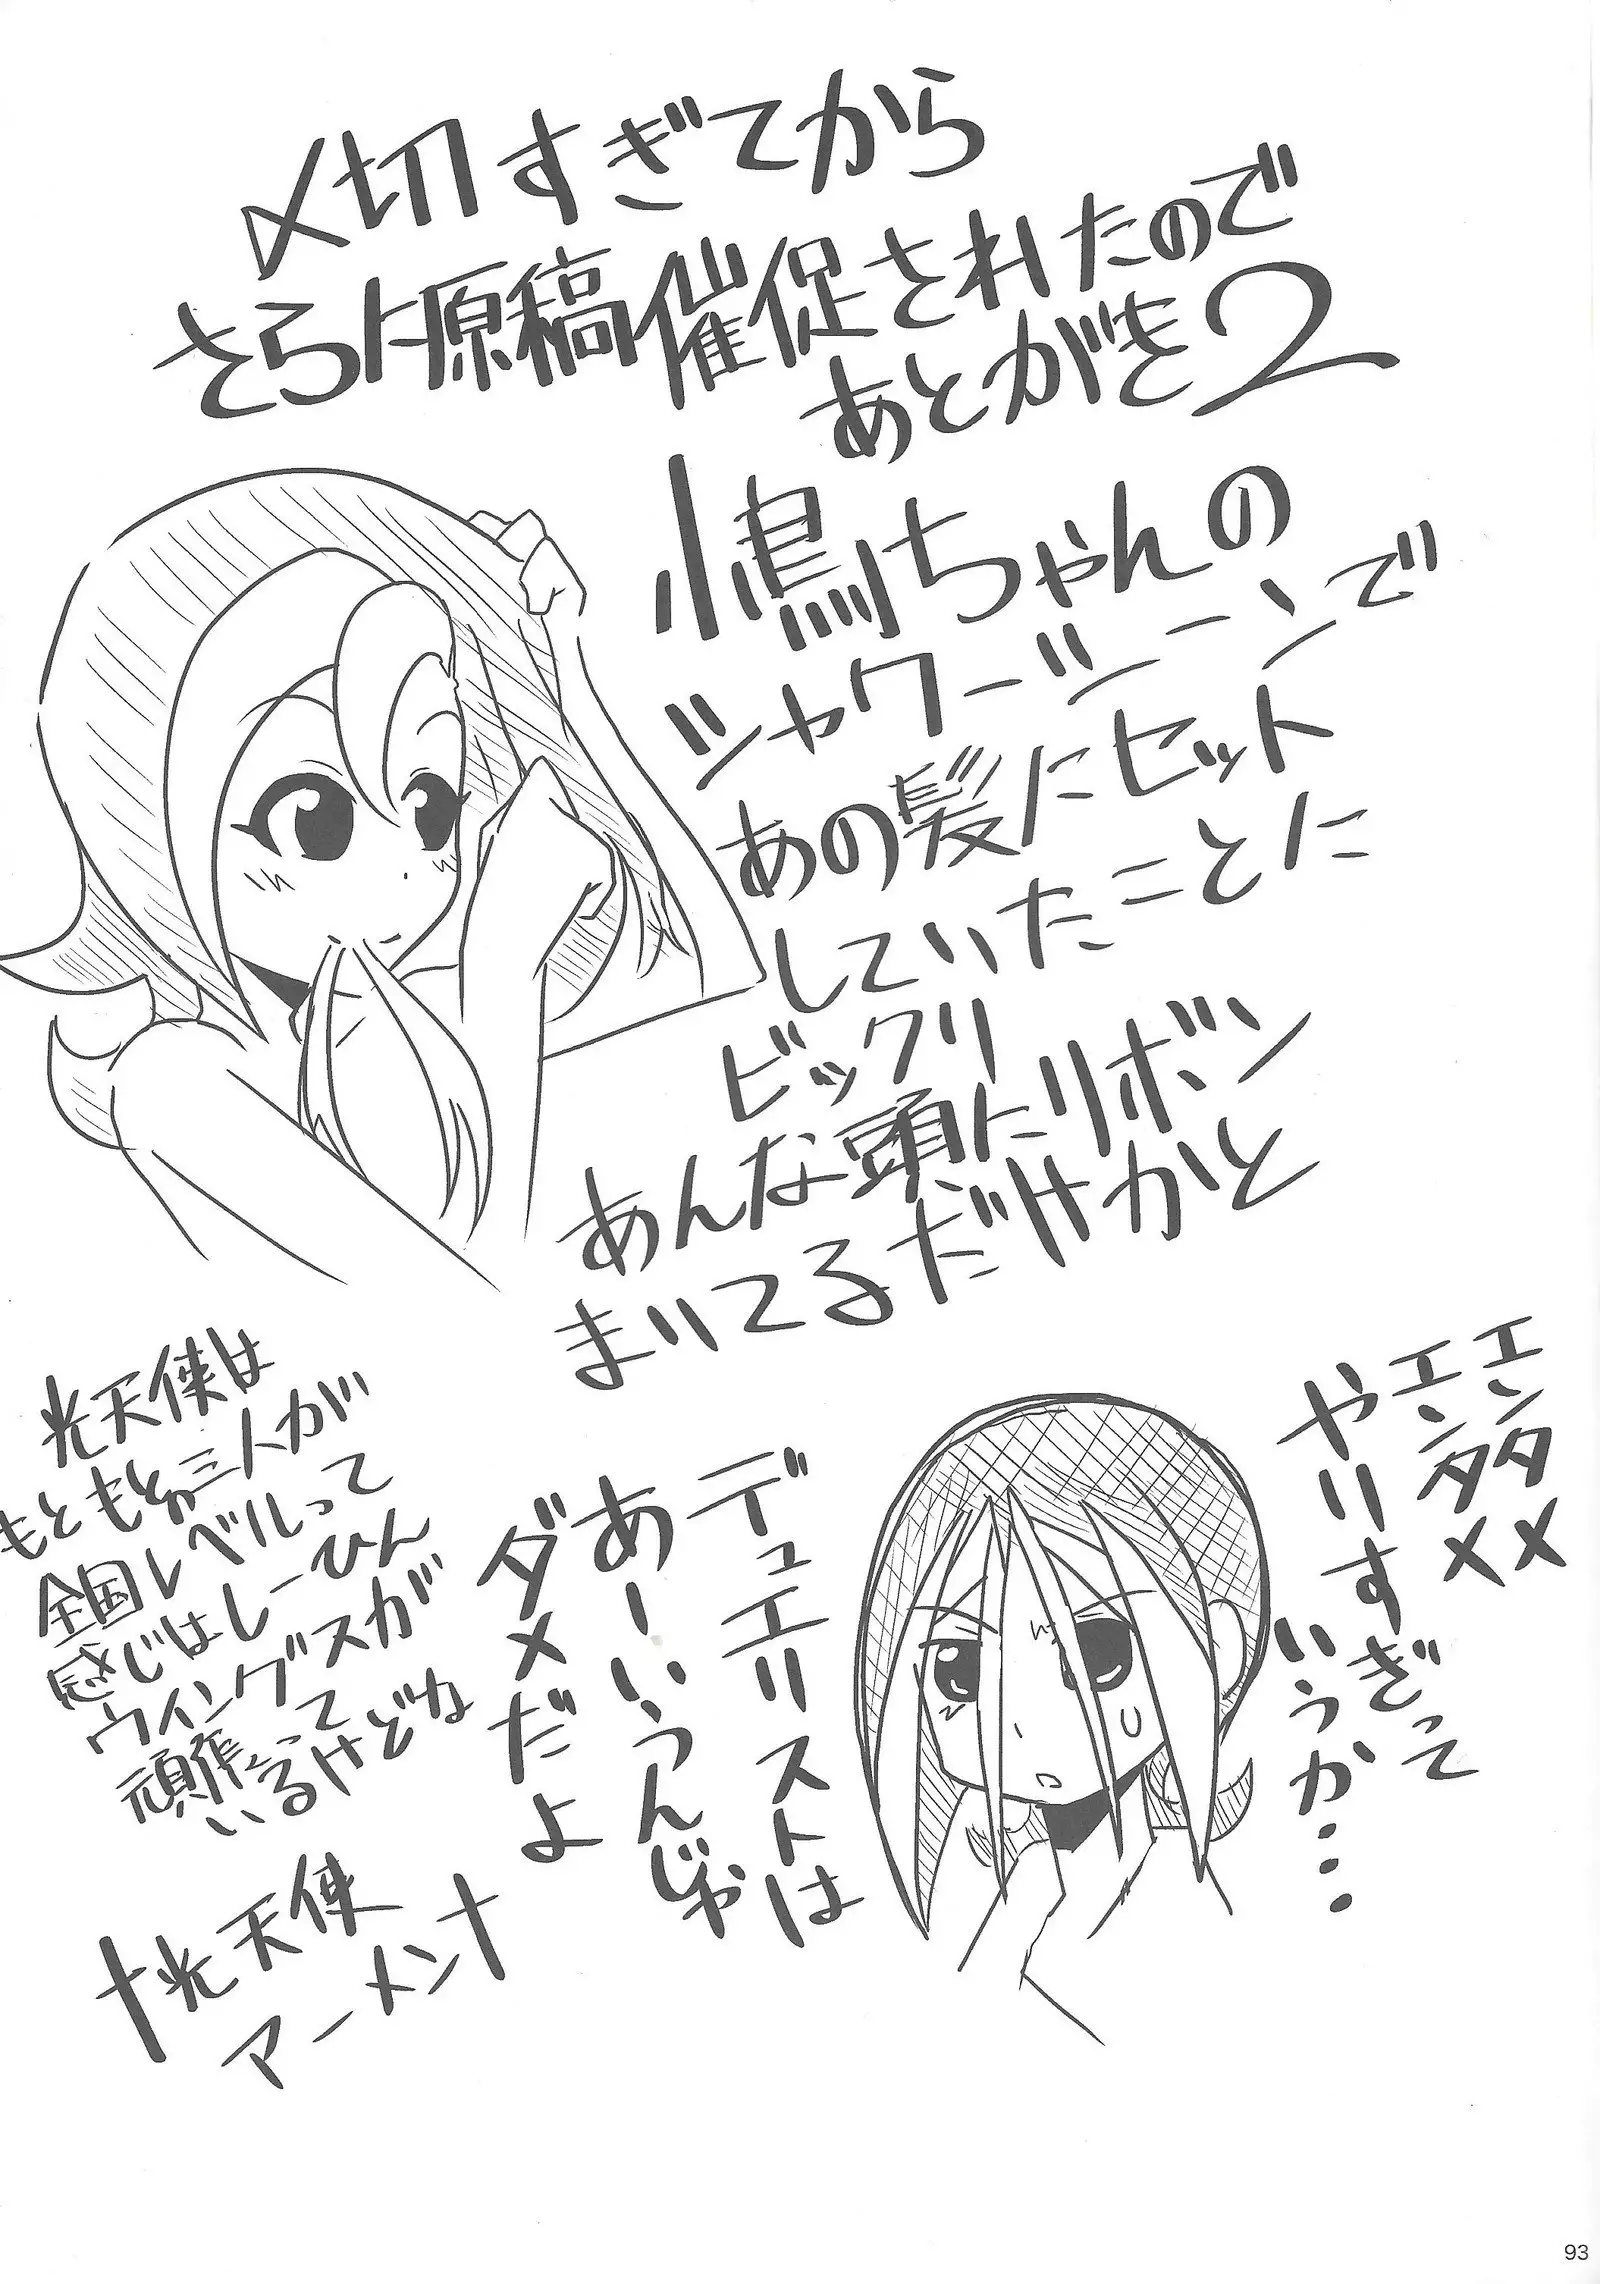 〆切すぎてから
さらに原稿催促されたので
あとがき2
小鳥ちゃんの
シャワーシーンで
あの髪にセット
していたことに
ビックリ
あんな頭にリボン
まいてるだけかと
エンタメ
エンタメ
やりすぎって
いうか…
デュエリストは
あーいうんじゃ
ダメだよ
光天使は
もともと三人が
全国レベルって
感じはしーひん
ウイングスが
頑張って
いるけどね
†光天使
アーメン†
93